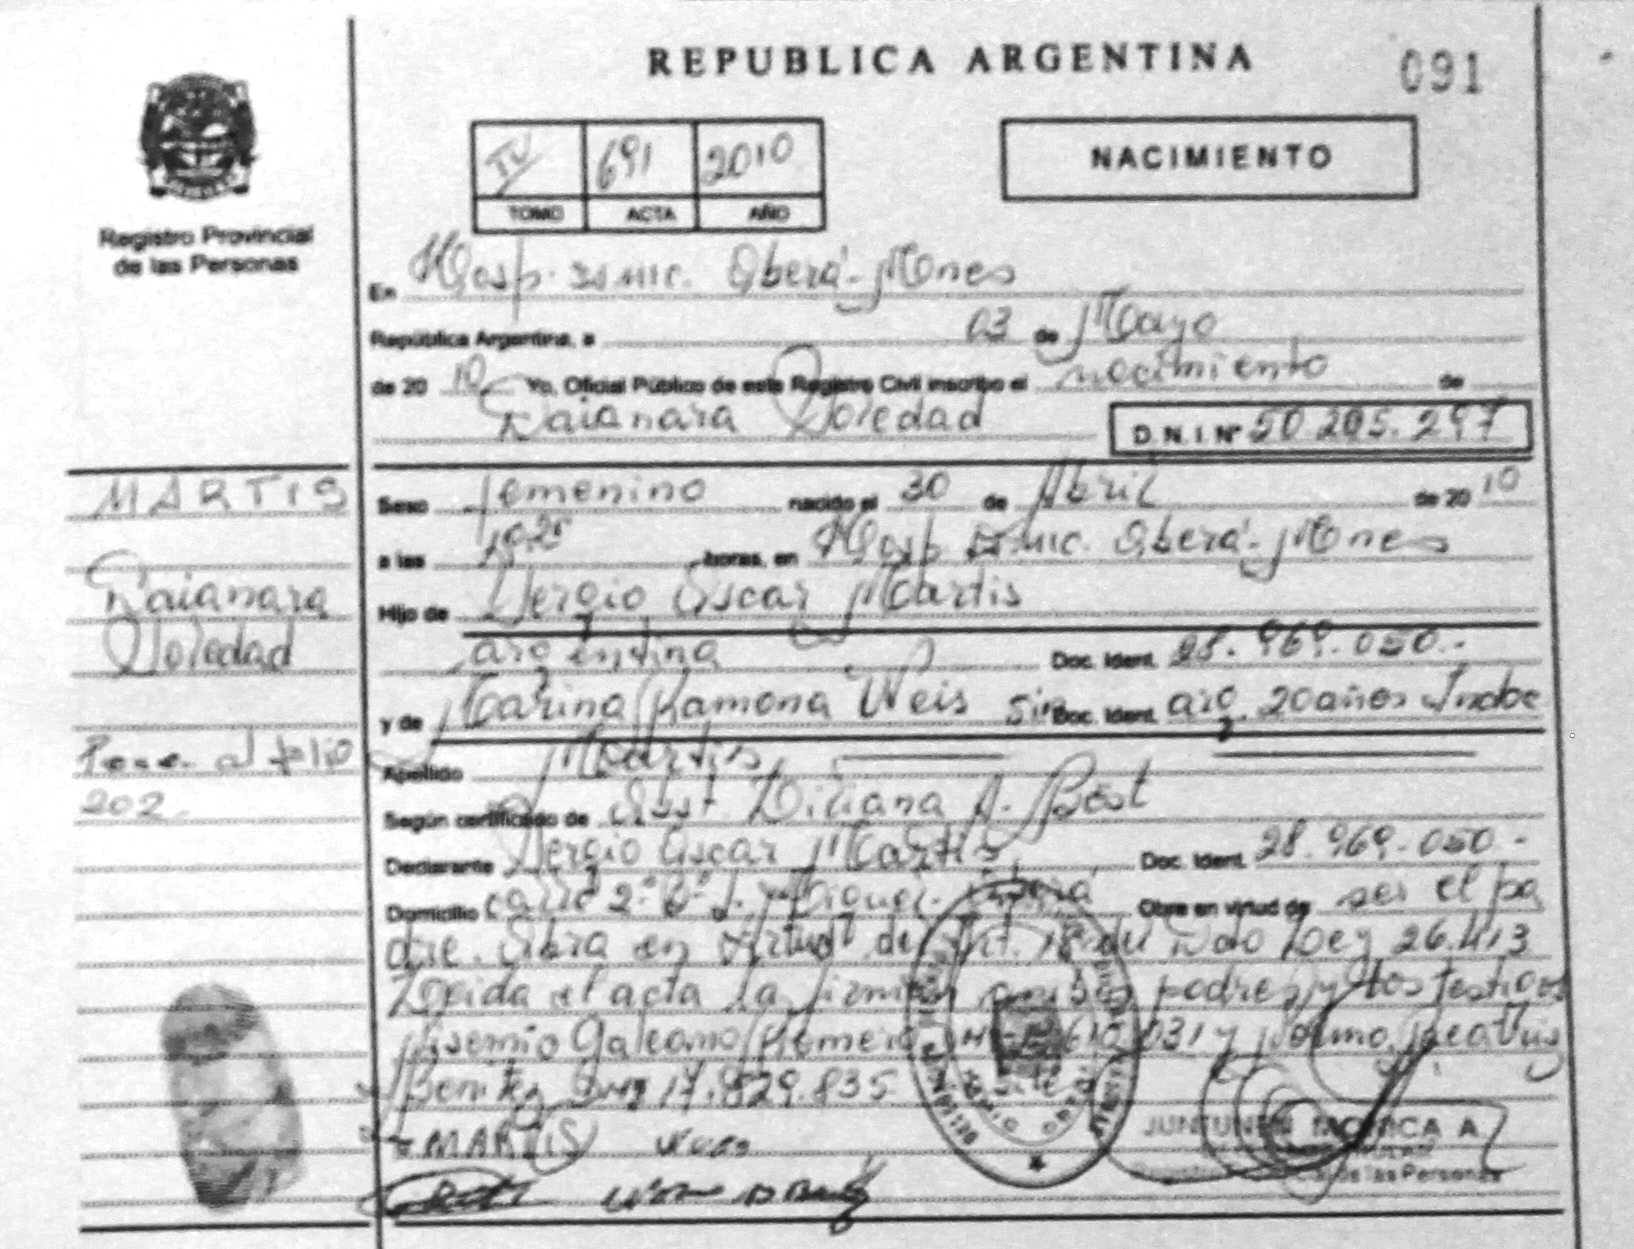 REPUBLICA ARGENTINA
091
IV 691 2010
TOMO ACTA AÑO
NACIMIENTO
Registro Provincial
de las Personas
En Hosp. Oberá-Mnes
República Argentina, a 03 de Mayo
de 2010 Yo, Oficial Público de este Registro Civil inscribo el nacimiento de
Daianara Soledad D.N.I Nº 50.205.297
MARTIS
Daianara
Soledad
Pase al folio
202
Sexo femenino nacido el 30 de Abril de 2010
a las horas, en Hosp. Oberá-Mnes
Hijo de Sergio Oscar Martis
argentina Doc. Ident. 28.969.050.-
y de Marina Ramona Weis sin Doc. Ident. arg. 20 años Indoc
Apellido Martis
Según certificado de Obst. A.
Declarante Sergio Oscar Martis Doc. Ident. 28.969.050.-
Domicilio Oberá Obra en virtud de ser el pa
dre. Obra en virtud del Art. 18 del Ley 26.413
Leída el acta la firman padres y los testigos
Galeano y
Benitez DNI 17.829.835
MARTIS
JUNTUNEN A.
de las Personas